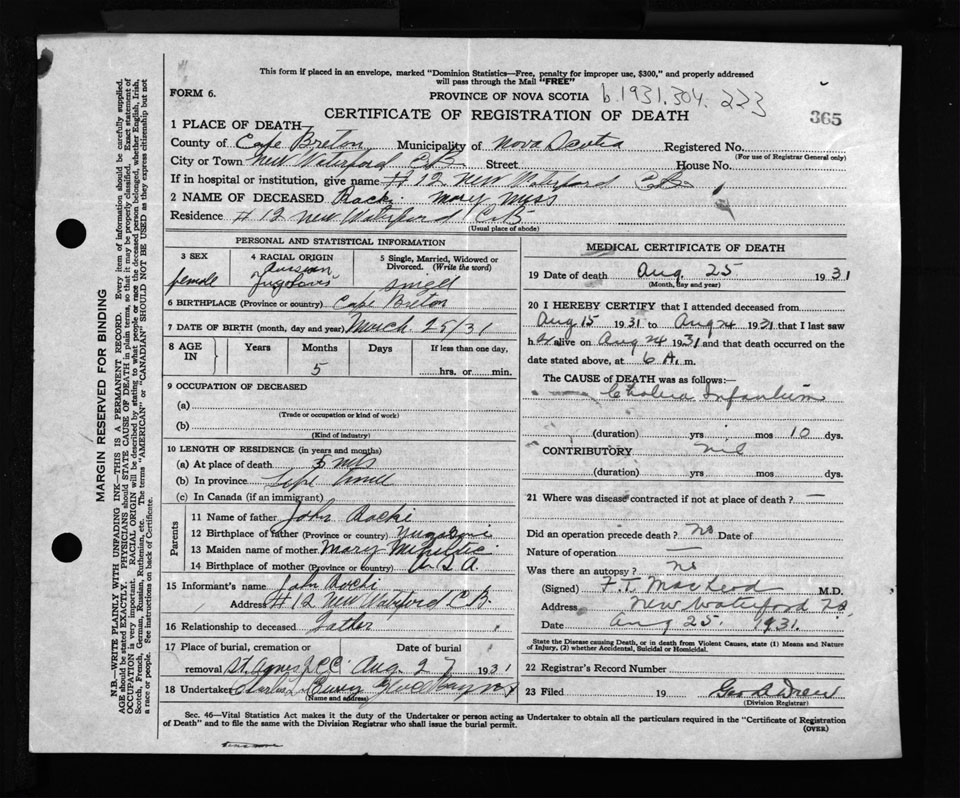 This form if placed in an envelope, marked "Dominion Statistics—Free, penalty for improper use, $300," and properly addressed
will pass through the Mail "FREE"
FORM 6.
PROVINCE OF NOVA SCOTIA
b.1931.304.223
CERTIFICATE OF REGISTRATION OF DEATH
365
1 PLACE OF DEATH—
County of Cape Breton Municipality of Nova Scotia Registered No.
(For use of Registrar General only)
City or Town New Waterford C.B. Street House No.
If in hospital or institution, give name # 12 New Waterford
2 NAME OF DECEASED Rocki Mary Miss
Residence # 12 New Waterford C.B.
(Usual place of abode)
PERSONAL AND STATISTICAL INFORMATION
3 SEX
female
4 RACIAL ORIGIN
5 Single, Married, Widowed or Divorced. (Write the word)
6 BIRTHPLACE (Province or country) Cape Breton
7 DATE OF BIRTH (month, day and year) March 25/31
8 AGE IN
Years
Months
Days
If less than one day,
5
hrs. or min.
9 OCCUPATION OF DECEASED
(a)
(Trade or occupation or kind of work)
(b)
(Kind of industry)
10 LENGTH OF RESIDENCE (in years and months)
(a) At place of death 5 mts
(b) In province
(c) In Canada (if an immigrant)
Parents
11 Name of father John Rocki
12 Birthplace of father (Province or country)
13 Maiden name of mother Mary
14 Birthplace of mother (Province or country) U.S.A.
15 Informant's name John Rocki
Address # 12 New Waterford C.B.
16 Relationship to deceased Father
17 Place of burial, cremation or removal
Date of burial
St. Agnes Aug. 27 1931
18 Undertaker
(Name and address)
MEDICAL CERTIFICATE OF DEATH
19 Date of death Aug. 25 1931
(Month, day and year)
20 I HEREBY CERTIFY that I attended deceased from
Aug 15 1931 to Aug 24 1931 that I last saw
her alive on Aug 24 1931 and that death occurred on the
date stated above, at 6 A. m.
The CAUSE of DEATH was as follows:—
Cholera Infantum
(duration) yrs mos 10 dys.
CONTRIBUTORY nil
(duration) yrs. mos. dys.
21 Where was disease contracted if not at place of death ? —
Did an operation precede death ? no Date of
Nature of operation —
Was there an autopsy ? no
(Signed) F.T. MacLeod M.D.
Address New Waterford N.S.
Date Aug 25. 1931.
State the Disease causing Death, or in death from Violent Causes, state (1) Means and Nature
of Injury, (2) whether Accidental, Suicidal or Homicidal.
22 Registrar's Record Number
23 Filed 19 Geo B Drew
(Division Registrar)
Sec. 46—Vital Statistics Act makes it the duty of the Undertaker or person acting as Undertaker to obtain all the particulars required in the "Certificate of Registration
of Death" and to file the same with the Division Registrar who shall issue the burial permit.
(OVER)
MARGIN RESERVED FOR BINDING
N.B.—WRITE PLAINLY WITH UNFADING INK—THIS IS A PERMANENT RECORD. Every item of information should be carefully supplied.
AGE should be stated EXACTLY. PHYSICIANS should STATE CAUSE OF DEATH in plain terms, so that it may be properly classified. Exact statement of
OCCUPATION is very important. RACIAL ORIGIN will be described by stating to what people or race the deceased person belonged, whether English, Irish,
Scotch, French, German, Russian, Ruthenian, etc. The terms "AMERICAN" or "CANADIAN" SHOULD NOT BE USED as they express citizenship but not
a race or people. See instructions on back of Certificate.